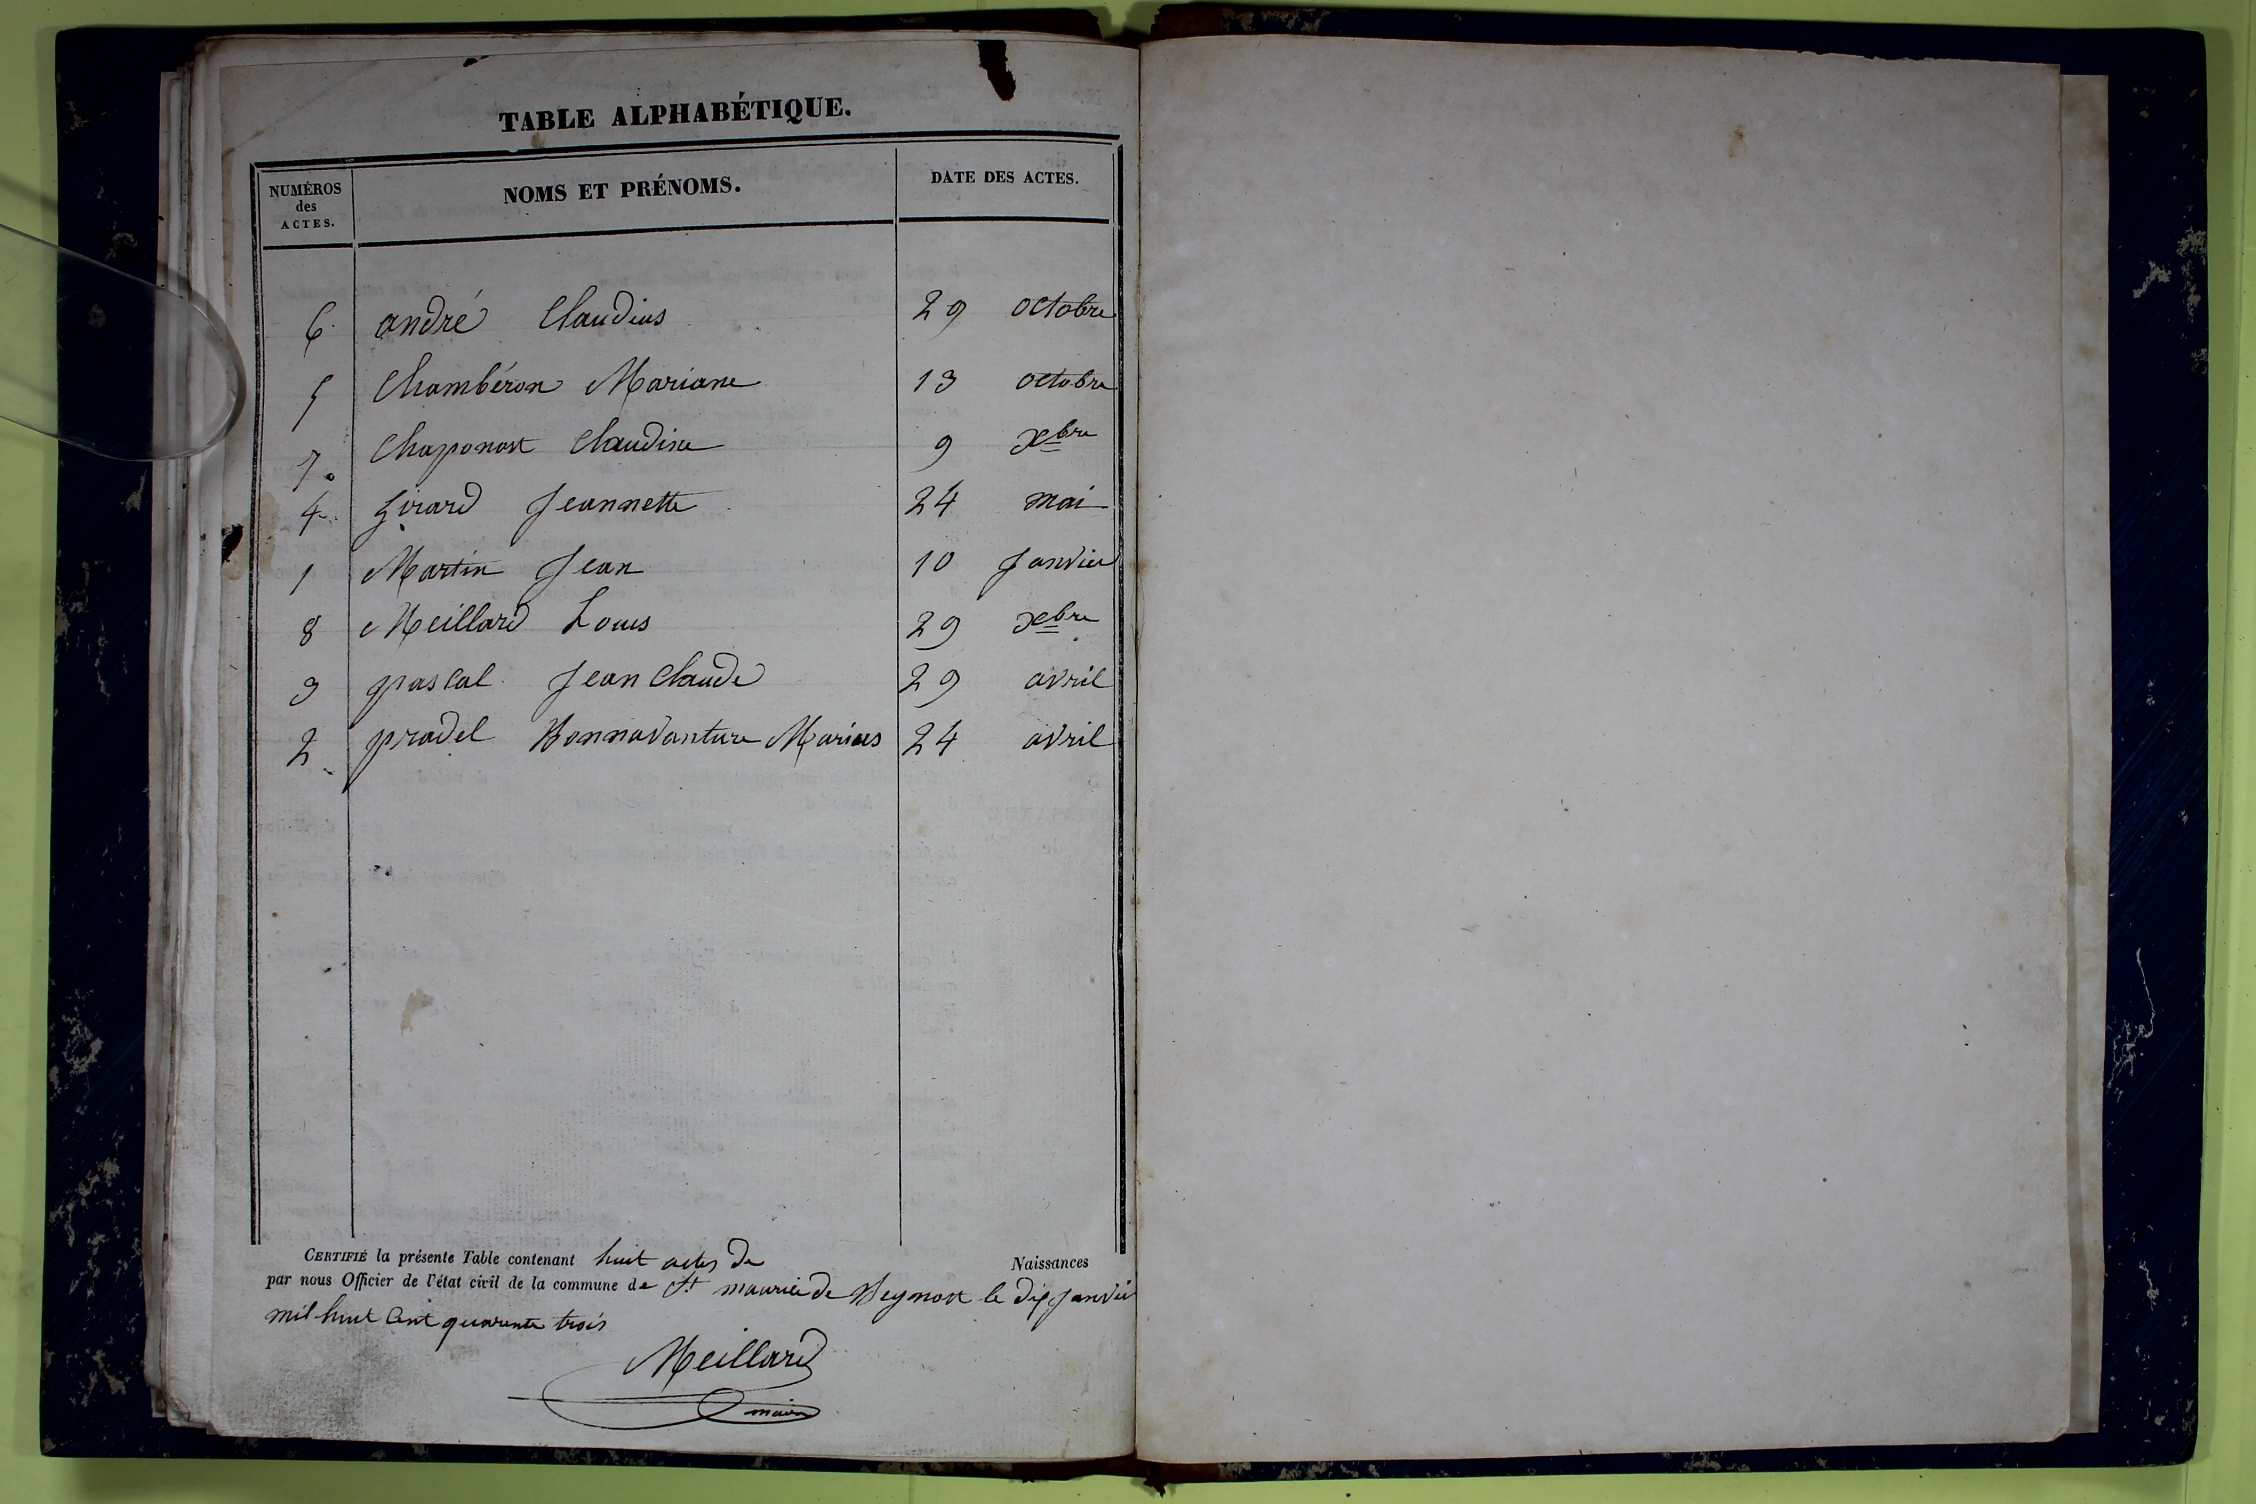 TABLE ALPHABÉTIQUE.
NUMÉROS des ACTES. NOMS ET PRÉNOMS. DATE DES ACTES.
6 andré Claudius 29 octobre
5 Chambéron Mariane 13 octobre
7. Chaponost Claudine 9 xbre
4 girard Jeannette 24 mai
1 Martin Jean 10 Janvier
8 Meillard Louis 29 xbre
3 pascal Jean Claude 29 avril
2 pradel Bonnavanture Marius 24 avril
CERTIFIÉ la présente Table contenant huit actes de Naissances
par nous Officier de l'état civil de la commune de St maurice de Beynost le dix Janvier
mil huit Cent quarante trois
Meillard
maire